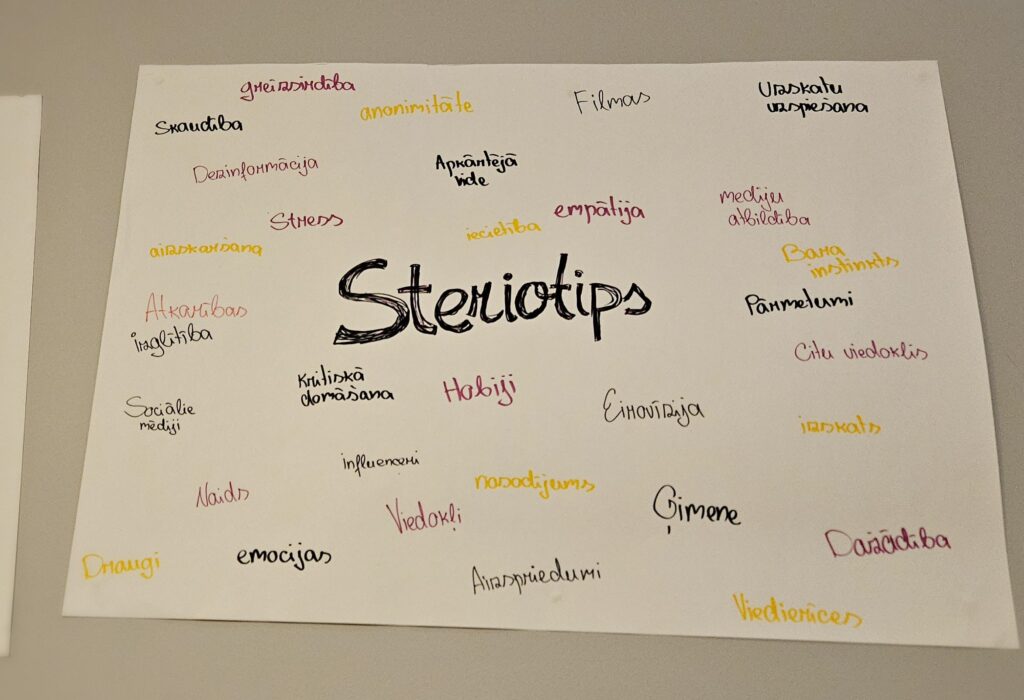 greizsirdība
anonimitāte
Filmas
Uzskatu
uzspiešana
Skaudība
Dezinformācija
Apkārtējā
vide
Stress
iecietība
empātija
mediju
atbildība
aizskaršana
Bara
instinkts
Steriotips
Atkarības
izglītība
Pārmetumi
Citu viedoklis
Kritiskā
domāšana
Hobiji
Sociālie
mēdiji
Eirovīzija
izskats
influenceri
Naids
nosodījums
Viedokļi
Ģimene
Draugi
emocijas
Aizspriedumi
Dažādība
Viedierīces